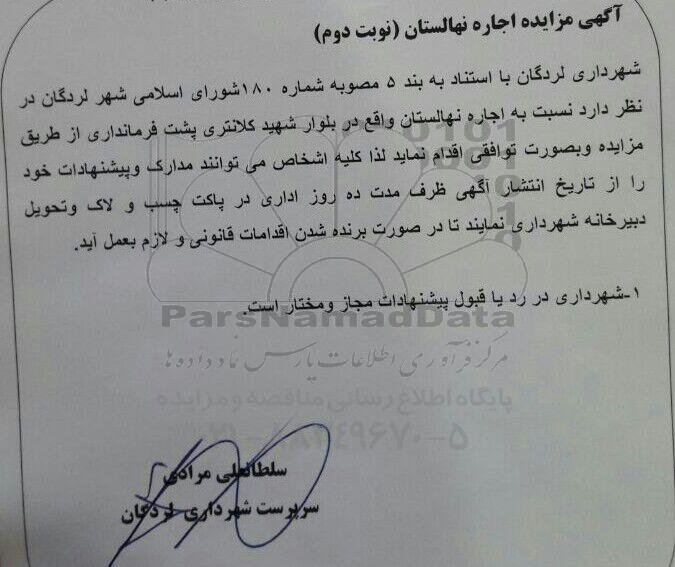 آگهی مزایده اجاره نهالستان (نوبت دوم)
شهرداری لردگان با استناد به بند ۵ مصوبه شماره ۱۸۰شورای اسلامی شهر لردگان در
نظر دارد نسبت به اجاره نهالستان واقع در بلوار شهید کلانتری پشت فرمانداری از طریق
مزایده وبصورت توافقی اقدام نماید لذا کلیه اشخاص می توانند مدارک وپیشنهادات خود
را از تاریخ انتشار آگهی ظرف مدت ده روز اداری در پاکت چسب و لاک وتحویل
دبیرخانه شهرداری نمایند تا در صورت برنده شدن اقدامات قانونی و لازم بعمل آید.
۱-شهرداری در رد یا قبول پیشنهادات مجاز ومختار است.
ParsNamadData
مرکز فرآوری اطلاعات پارس نماد داده ها
پایگاه اطلاع رسانی مناقصه و مزایده
سلطانعلی مرادی
سرپرست شهرداری لردگان